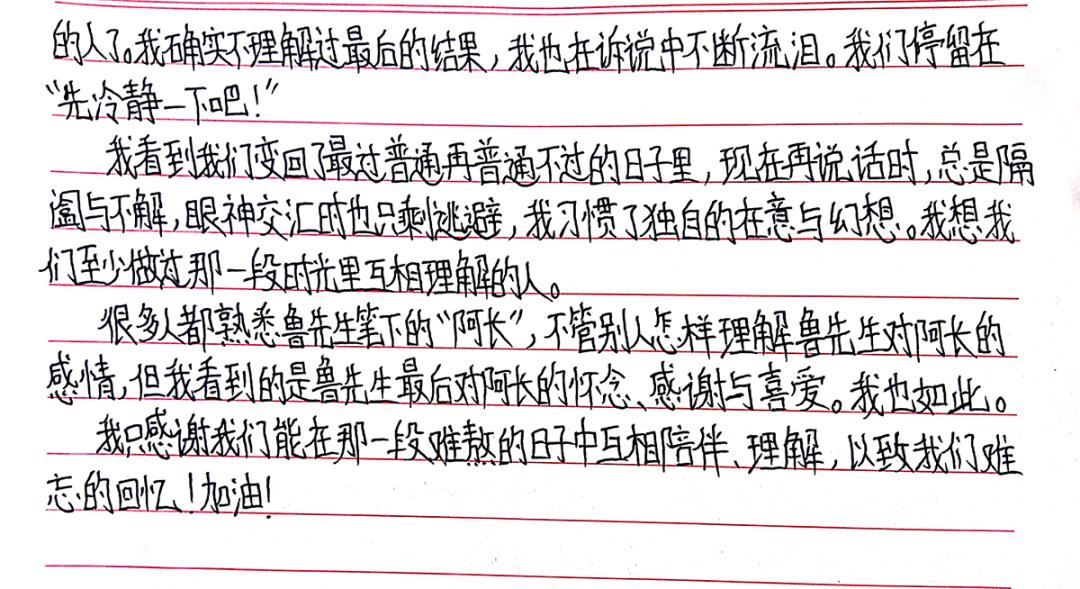 的人了。我确实不理解过最后的结果，我也在诉说中不断流泪。我们停留在
“先冷静一下吧！”
我看到我们变回了最过普通再普通不过的日子里，现在再说话时，总是隔
阂与不解，眼神交汇时也只剩逃避，我习惯了独自的在意与幻想。我想我
们至少做过那一段时光里互相理解的人。
很多人都熟悉鲁先生笔下的“阿长”，不管别人怎样理解鲁先生对阿长的
感情，但我看到的是鲁先生最后对阿长的怀念、感谢与喜爱。我也如此。
我只感谢我们能在那一段难熬的日子中互相陪伴、理解，以致我们难
忘的回忆！加油！